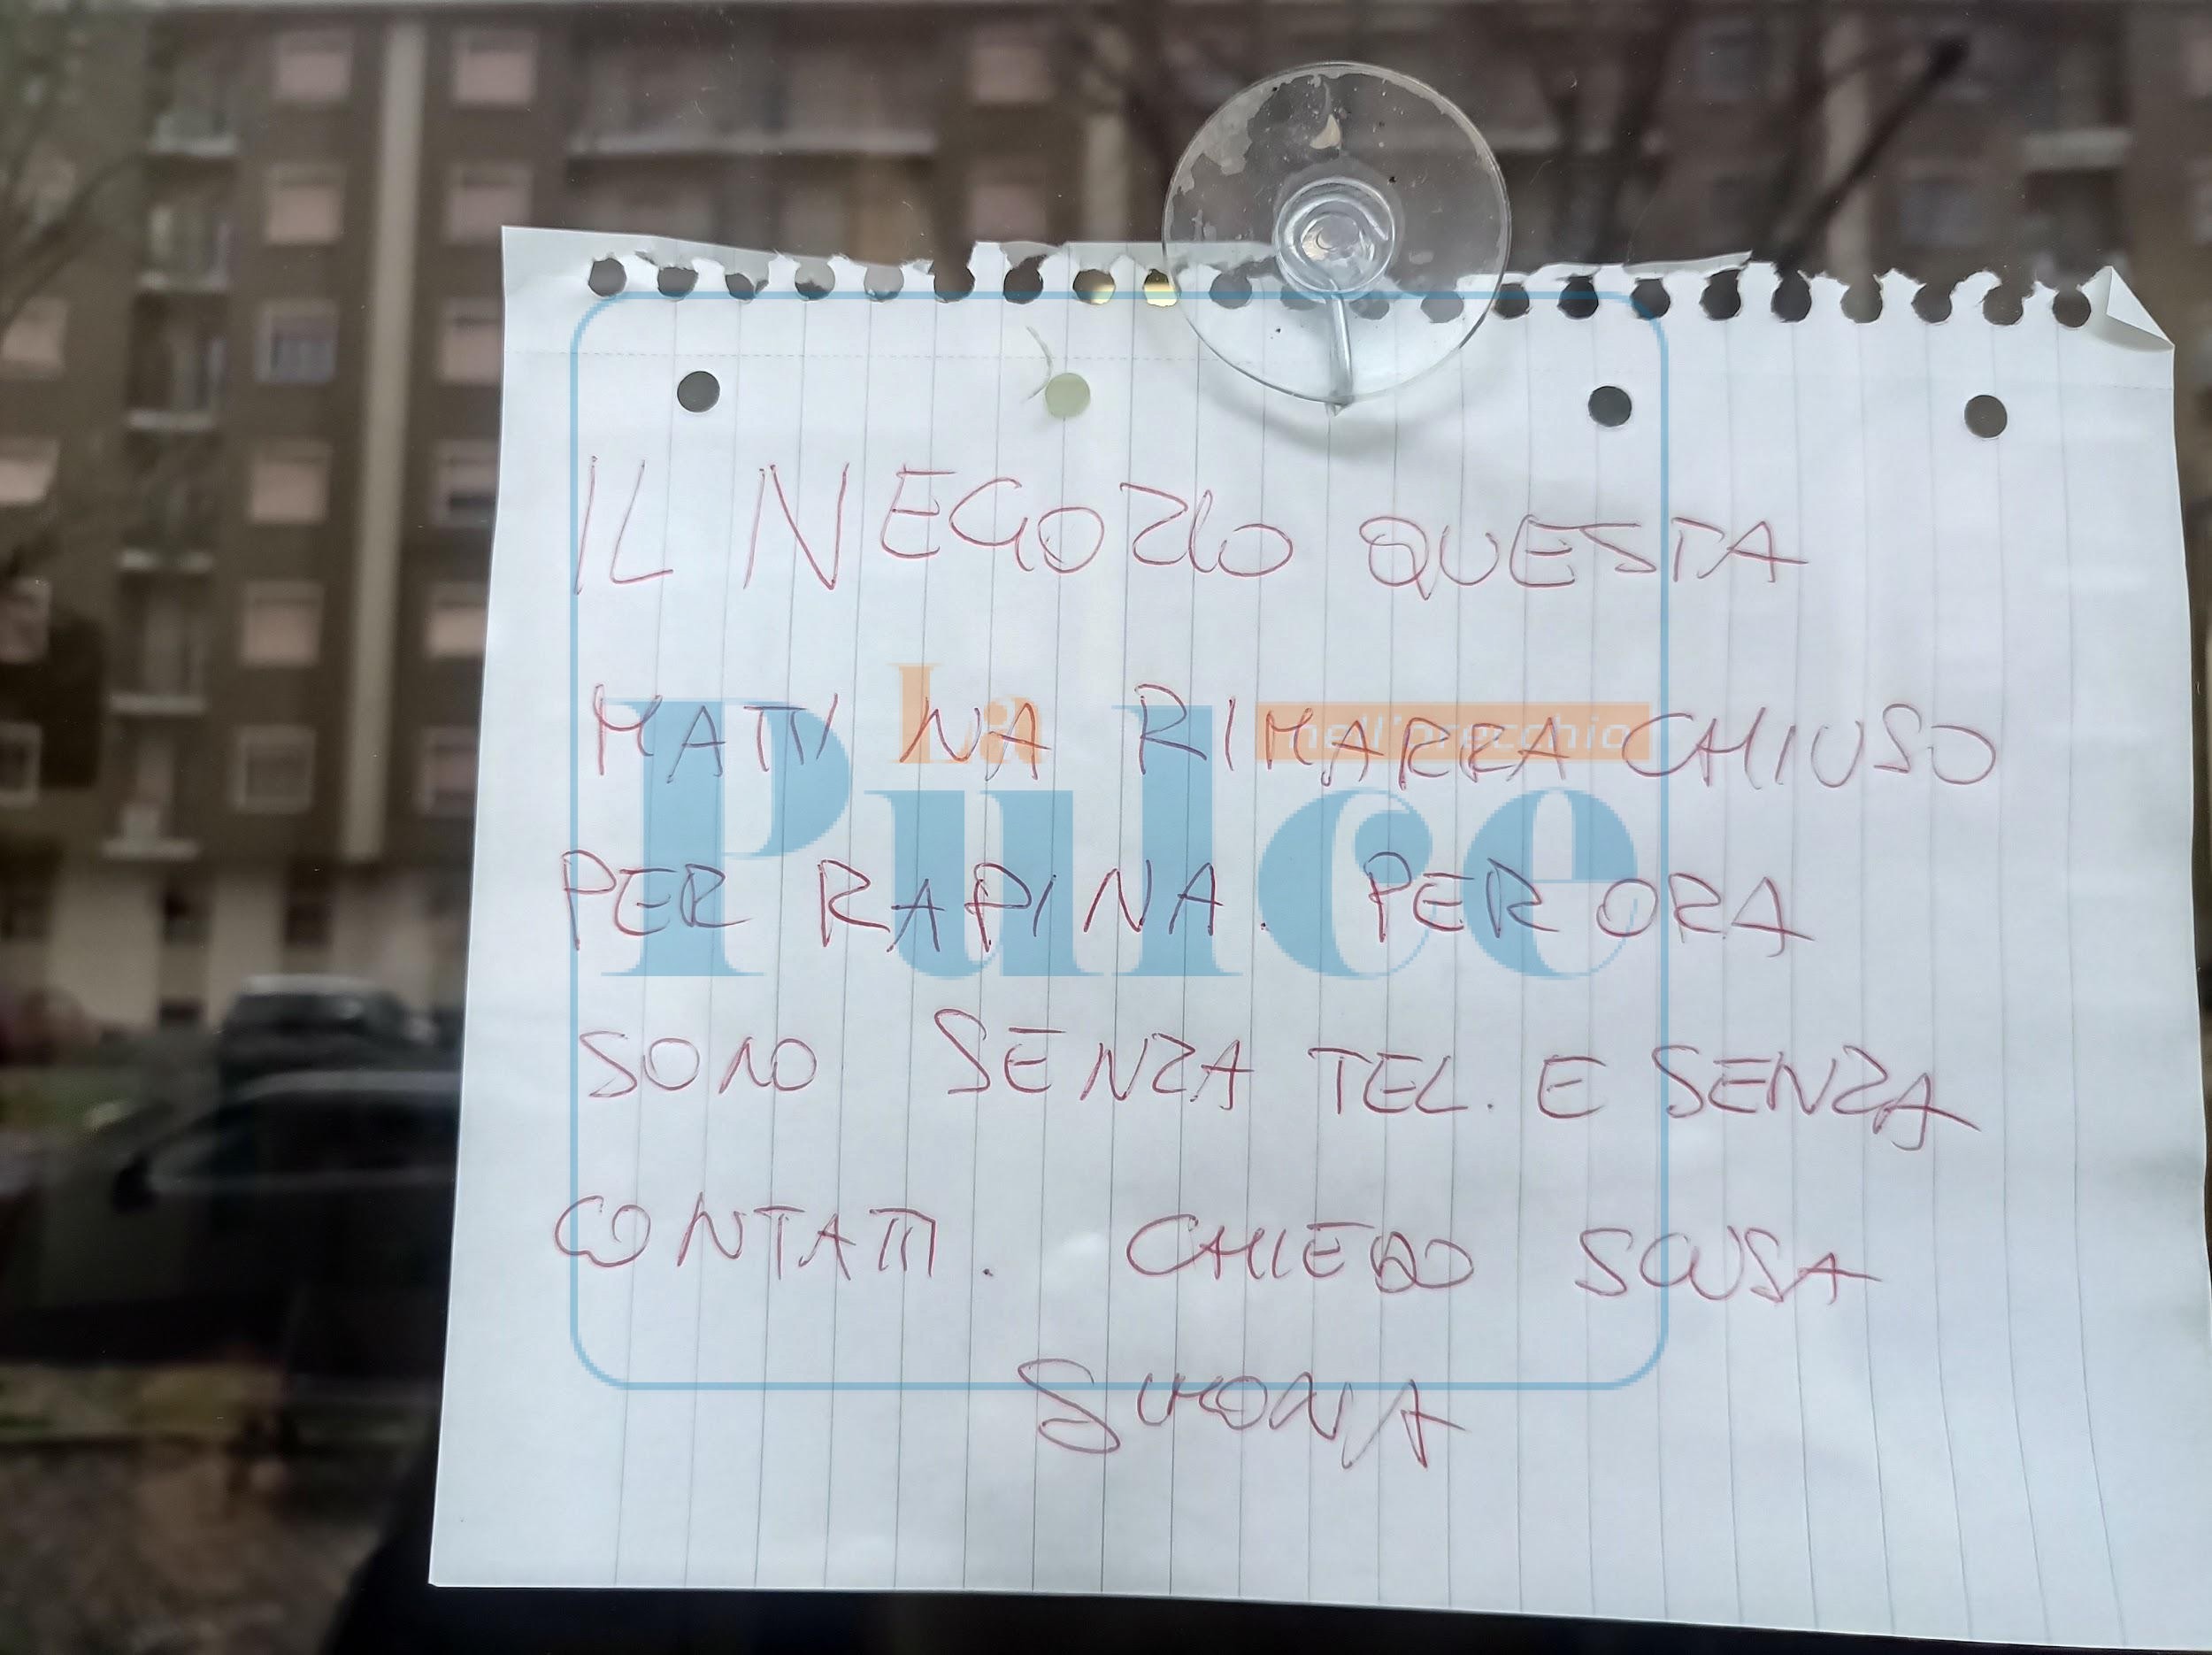 IL NEGOZIO QUESTA
MATTINA RIMARRA CHIUSO
PER RAPINA. PER ORA
SONO SENZA TEL. E SENZA
CONTATTI. CHIEDO SCUSA
SIMONA
La
nell'orecchio
Pulce